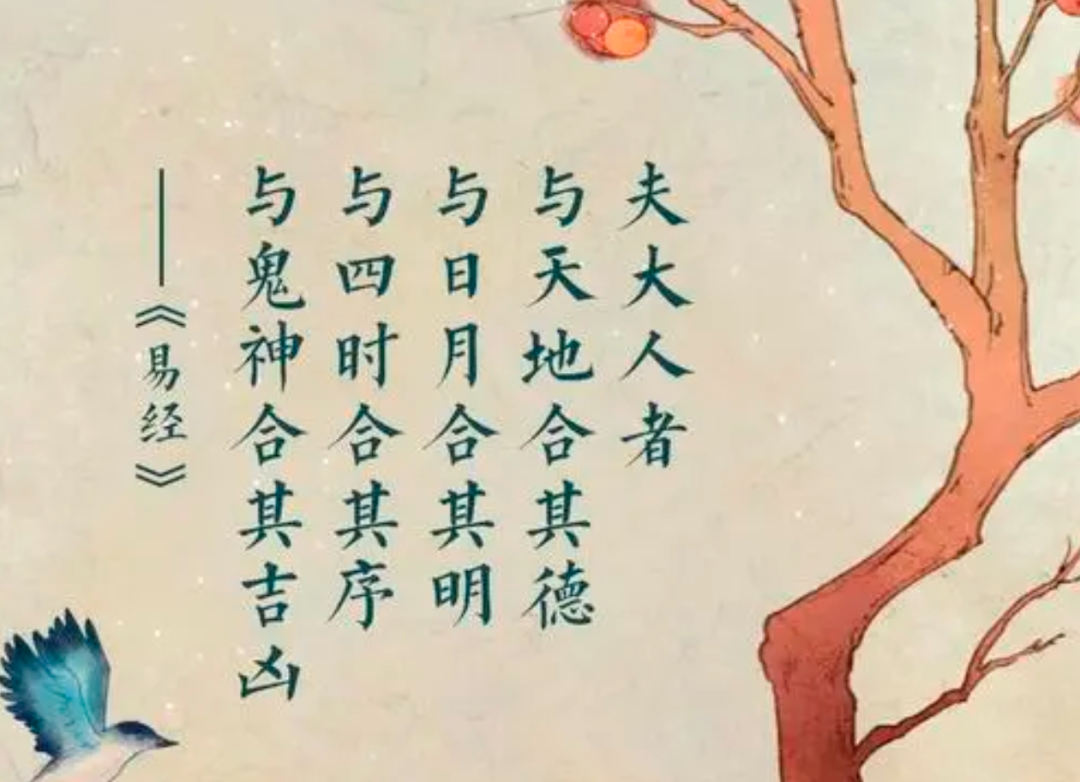 夫大人者
与天地合其德
与日月合其明
与四时合其序
与鬼神合其吉凶
——《易经》